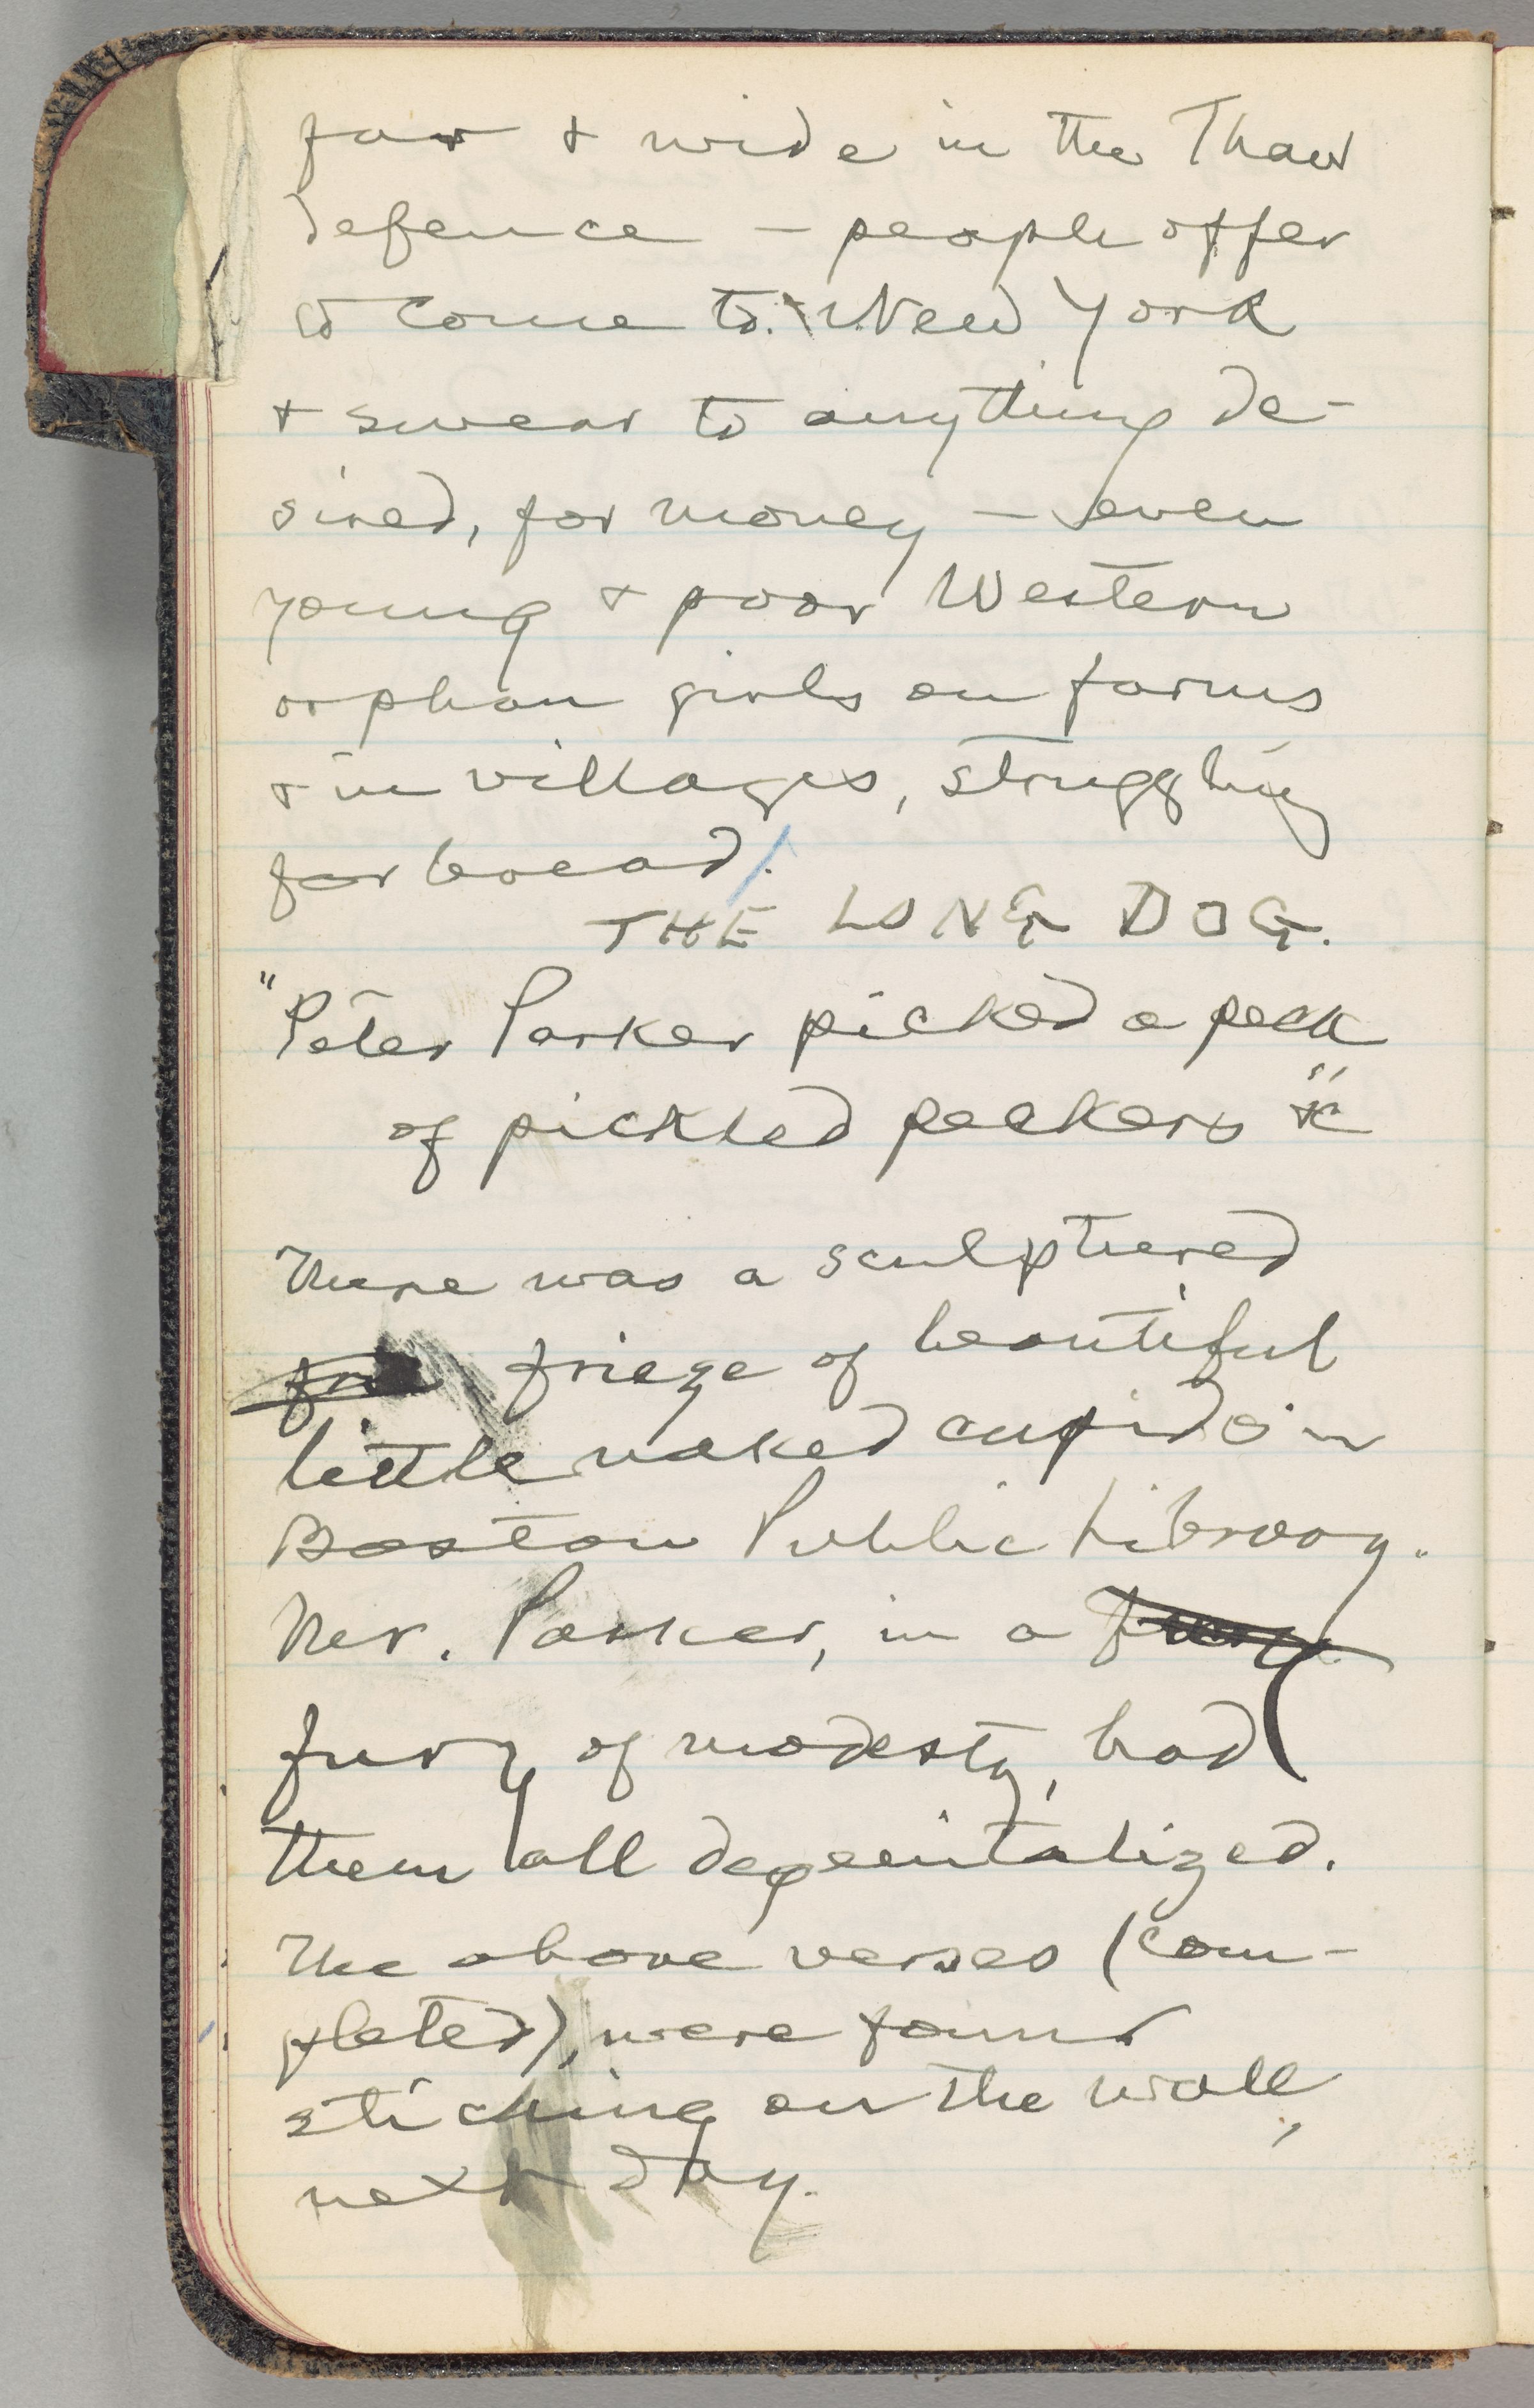 far & wide in the Thaw
defence — people offer
to come to New York
& swear to anything de-
sired, for money — even
young & poor Western
orphan girls on farms
& in villages, struggling
for bread.
THE LONG DOG.
"Peter Parker picked a peck
of pickled peckers" &c
There was a sculptured
frieze of beautiful
little naked cupids in
Boston Public Library.
Mr. Parker, in a
fury of modesty, had
them all degenitalized.
The above verses (com-
pleted), were found
sticking on the wall,
next day.